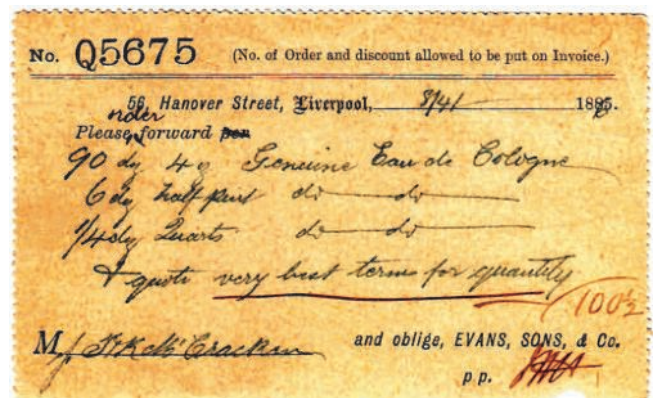 No. Q5675 (No. of Order and discount allowed to be put on Invoice.)
56, Hanover Street, Liverpool, 188
order
Please forward per
90 dz 4 oz Genuine Eau de Cologne
6 dz half pint do do
1/4 dz Quarts do do
& quote very best terms for quantity
100 1/2
M J. & R. McCracken and oblige, EVANS, SONS, & Co.
pp.